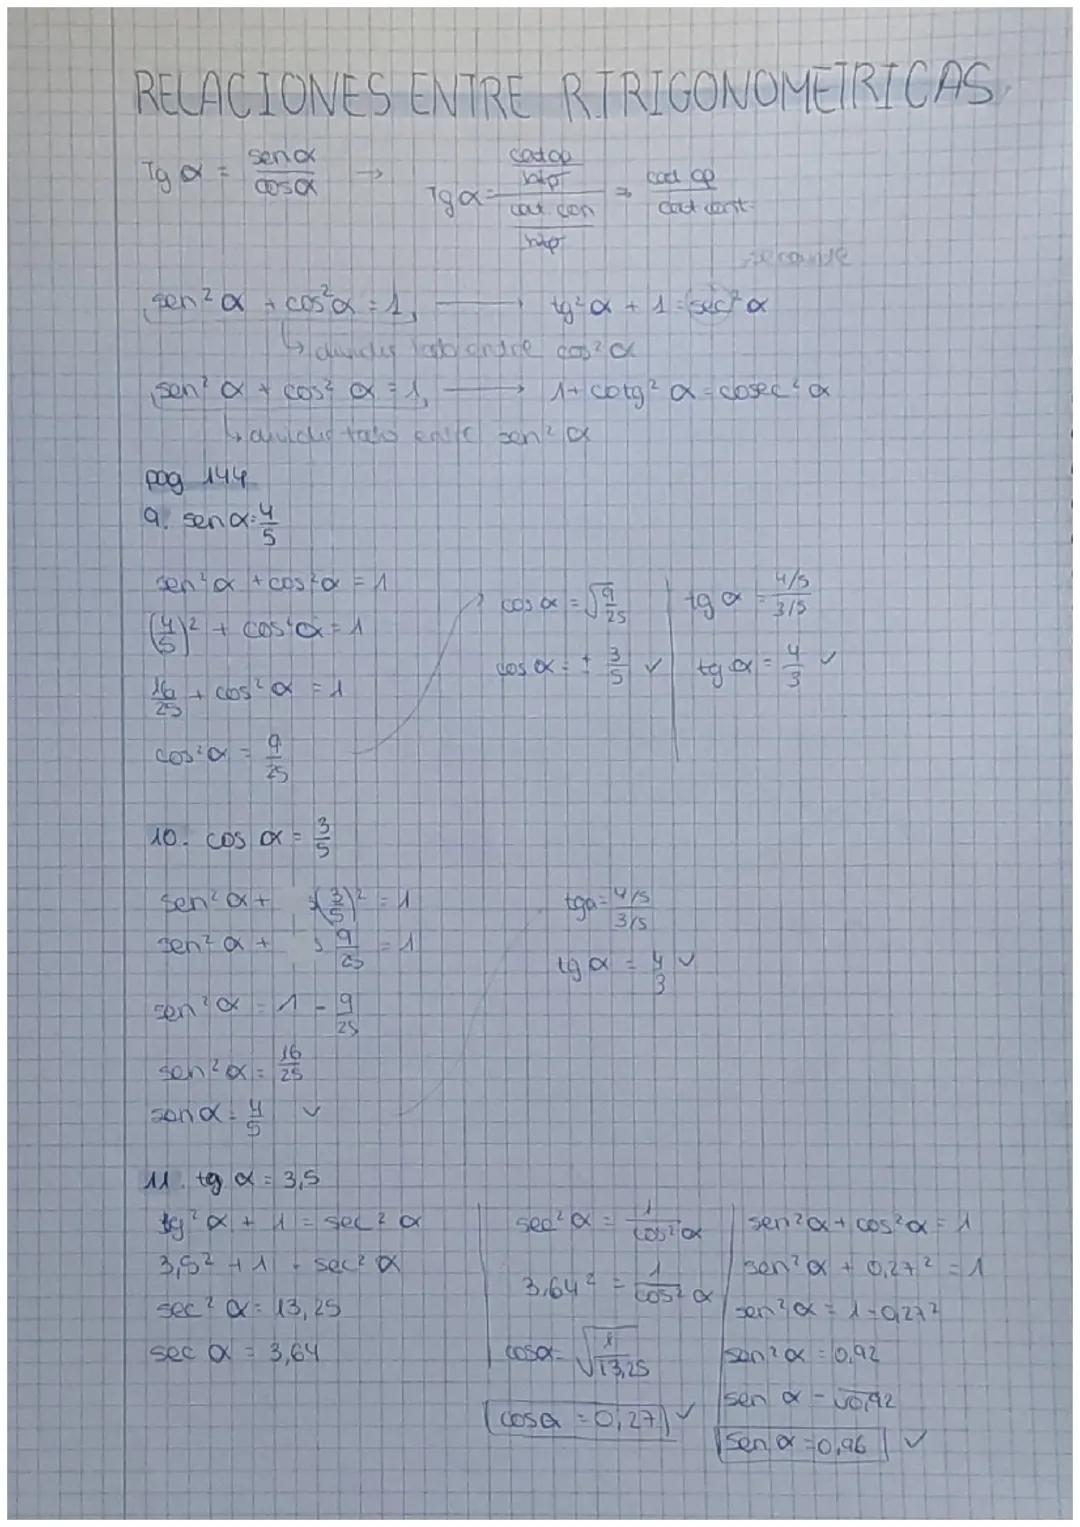 RELACIONES ENTRE R.TRIGONOMETRICAS
Tg α = sen α / cos α → Tg α = (cat op / hip) / (cat con / hip) ⇒ cat op / cat cont.
secante
sen² α + cos² α = 1, → tg² α + 1 = sec² α
↳ dividir todo entre cos² α
sen² α + cos² α = 1, → 1 + cotg² α = cosec² α
↳ dividir todo entre sen² α
pag 144
9. sen α = 4/5
sen² α + cos² α = 1
(4/5)² + cos² α = 1
16/25 + cos² α = 1
cos² α = 9/25
cos α = √9/25
cos α = ± 3/5 ✓
tg α = 4/5 / 3/5
tg α = 4/3 ✓
10. cos α = 3/5
sen² α + (3/5)² = 1
sen² α + 9/25 = 1
sen² α = 1 - 9/25
sen² α = 16/25
sen α = 4/5 ✓
tga = 4/5 / 3/5
tg α = 4/3 ✓
11. tg α = 3,5
tg² α + 1 = sec² α
3,5² + 1 = sec² α
sec² α = 13,25
sec α = 3,64
sec² α = 1 / cos² α
3,64² = 1 / cos² α
cos α = √1/13,25
cos α = 0,27 ✓
sen² α + cos² α = 1
sen² α + 0,27² = 1
sen² α = 1 - 0,27²
sen² α = 0,92
sen α = √0,92
sen α = 0,96 ✓